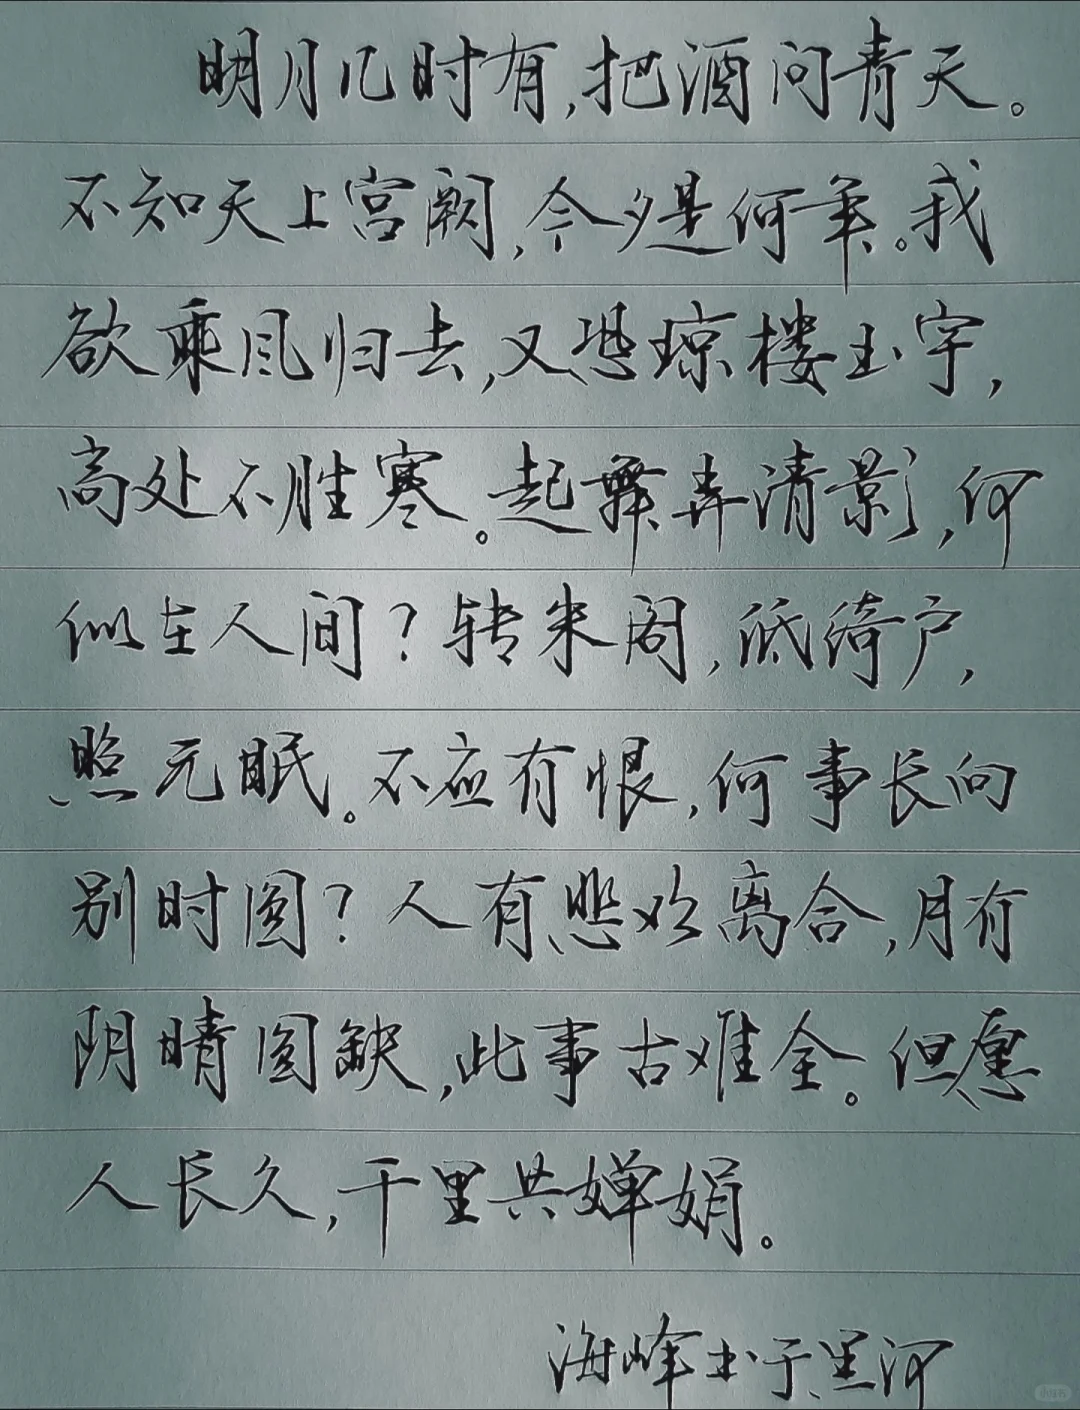 明月几时有,把酒问青天。
不知天上宫阙,今夕是何年。我
欲乘风归去,又恐琼楼玉宇,
高处不胜寒。起舞弄清影,何
似在人间?转朱阁,低绮户,
照无眠。不应有恨,何事长向
别时圆?人有悲欢离合,月有
阴晴圆缺,此事古难全。但愿
人长久,千里共婵娟。
海峰书于黑河